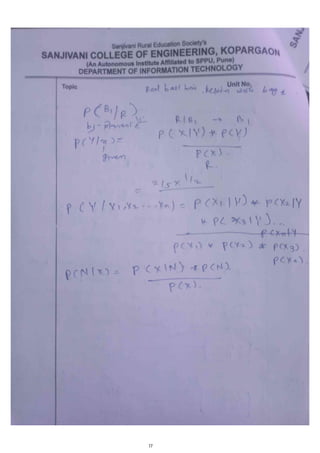 Sanjivani Rural Education Society's
SANJIVANI COLLEGE OF ENGINEERING, KOPARGAON
(An Autonomous Institute Affiliated to SPPU, Pune)
DEPARTMENT OF INFORMATION TECHNOLOGY
SAN
Topic
Unit No.
Red ball
P(B1/R)
R|B1 → B1
P(X|Y) * P(Y)
P(Y/x) =
given
P(X).
R.
= 2/5 x 1/2
P(Y/X1,X2...Xn) = P(X1|Y) * P(X2|Y
* P(X3|Y)...
P(Xn|Y
P(X1) * P(X2) * P(X3).
P(Xn).
P(N|X) = P(X|N) * P(N).
P(X).
17